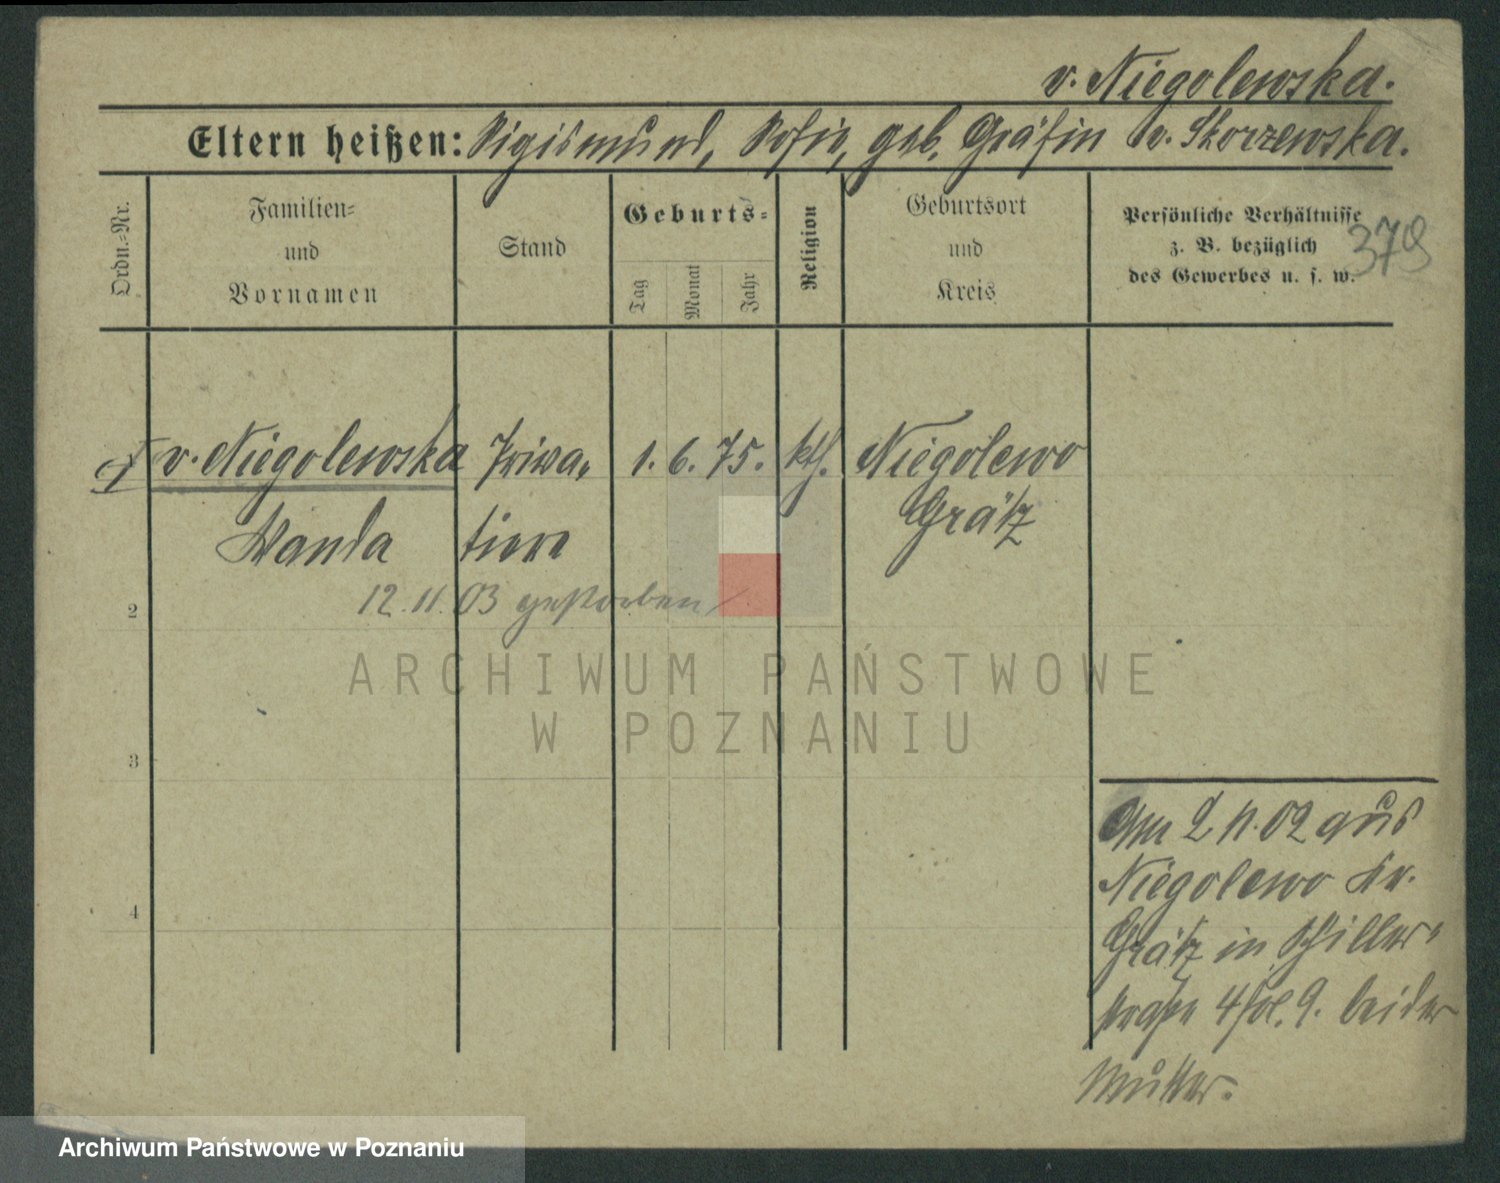 v. Niegolewska.
Eltern heißen: Sigismund, Sofie, geb. Gräfin v. Skorzewska.
Ordn.-Nr.
Familien-
und
Vornamen
Stand
Geburts-
Tag
Monat
Jahr
Religion
Geburtsort
und
Kreis
Persönliche Verhältnisse
z. B. bezüglich
des Gewerbes u. s. w.
379
1 v. Niegolewska Priva- 1. 6. 75. kth. Niegolewo
Wanda tiere Grätz
12.11.03 gestorben
2
3
4
Am 2 11.02 aus
Niegolewo Kr.
Grätz in Schiller-
straße 4 9. bei der
Mutter.
ARCHIWUM PAŃSTWOWE
W POZNANIU
Archiwum Państwowe w Poznaniu